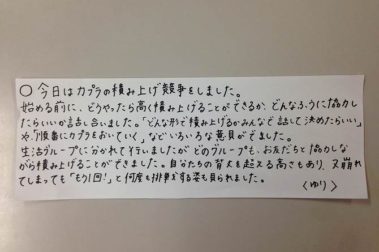 ○ 今日はカプラの積み上げ競争をしました。
始める前に、どうやったら高く積み上げることができるか、どんなふうに協力し
たらいいか話し合いました。「どんな形で積み上げるかみんなで話して決めたらいい」
や、「順番にカプラをおいていく」などいろいろな意見がでました。
生活グループに分かれて行いましたがどのグループも、お友だちと協力しな
がら積み上げることができました。自分たちの背丈を超える高さもあり、又崩れ
てしまっても「もう1回!」と何度も挑戦する姿も見られました。
〈ゆり〉